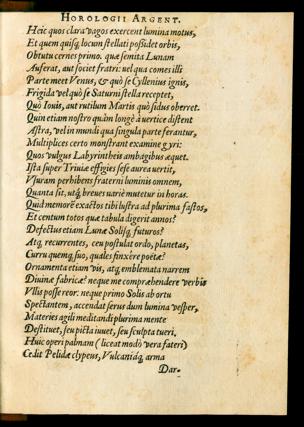 HOROLOGII ARGENT.
Heic quos clara vagos exercent lumina motus,
Et quem quisq; locum stellati possidet orbis,
Obtutu cernes primo. quæ semita Lunam
Auferat, aut societ fratri: vel qua comes illi
Parte meet Venus, & quò se Cyllenius ignis,
Frigida vel quò se Saturni stella receptet,
Quò Iouis, aut rutilum Martis quò sidus oberret.
Quin etiam nostro quàm longè à uertice distent
Astra, vel in mundi qua singula parte ferantur,
Multiplices certo monstrant examine gyri:
Quos vulgus Labyrintheis ambagibus æquet.
Ista super Triuiæ effigies sese aurea uertit,
Vsuram perhibens fraterni luminis omnem,
Quanta sit, utq; breues uariè mutetur in horas.
Quid memorē exactos tibi lustra ad plurima fastos,
Et centum totos quæ tabula digerit annos?
Defectus etiam Lunæ Solisq; futuros?
Atq; recurrentes, ceu postulat ordo, planetas,
Curru quemq; suo, quales finxere poëtæ?
Ornamenta etiam vis, atq; emblemata narrem
Diuinæ fabricæ? neque me compræhendere verbis
Vllis posse reor: neque primo Solis ab ortu
Spectantem, accendat serus dum lumina vesper,
Materies agili meditandi plurima mente
Destituet, seu picta iuuet, seu sculpta tueri.
Huic operi palmam (liceat modò vera fateri)
Cedit Pelidæ clypeus, Vulcaniáq; arma
Dar-